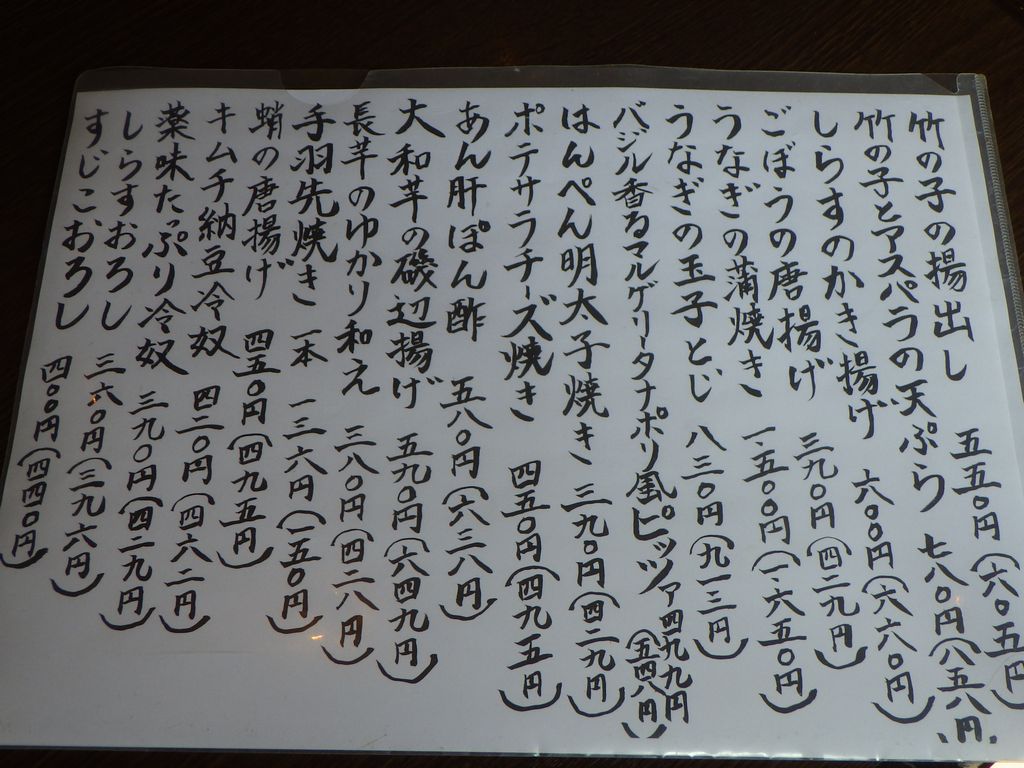 竹の子の揚出し 五五〇円(六〇五円)
竹の子とアスパラの天ぷら 七八〇円(八五八円)
しらすのかき揚げ 六〇〇円(六六〇円)
ごぼうの唐揚げ 三九〇円(四二九円)
うなぎの蒲焼き 一.五〇〇円(一.六五〇円)
うなぎの玉子とじ 八三〇円(九一三円)
バジル香るマルゲリータナポリ風ピッツァ 四九九円(五四八円)
はんぺん明太子焼き 三九〇円(四二九円)
ポテサラチーズ焼き 四五〇円(四九五円)
あん肝ぽん酢 五八〇円(六三八円)
大和芋の磯辺揚げ 五九〇円(六四九円)
長芋のゆかり和え 三八〇円(四一八円)
手羽先焼き 一本 一三六円(一五〇円)
蛸の唐揚げ 四五〇円(四九五円)
キムチ納豆冷奴 四二〇円(四六二円)
薬味たっぷり冷奴 三九〇円(四二九円)
しらすおろし 三六〇円(三九六円)
すじこおろし 四〇〇円(四四〇円)